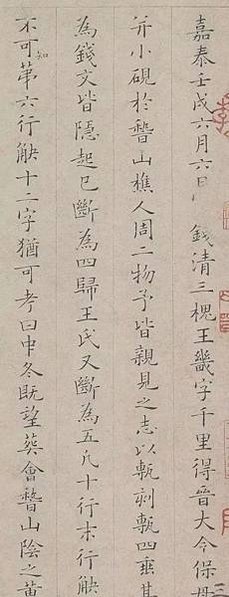 嘉泰壬戌六月六日 錢清三槐王畿字千里得晉大令保母
并小硯於嵆山樵人周二物予皆親見之志以甎刻甎四垂其
為錢文皆隱起已斷為四歸王氏又斷為五凡十行末行缺
不可知苐六行缺十二字猶可考曰中冬既望葬會嵆山陰之黃